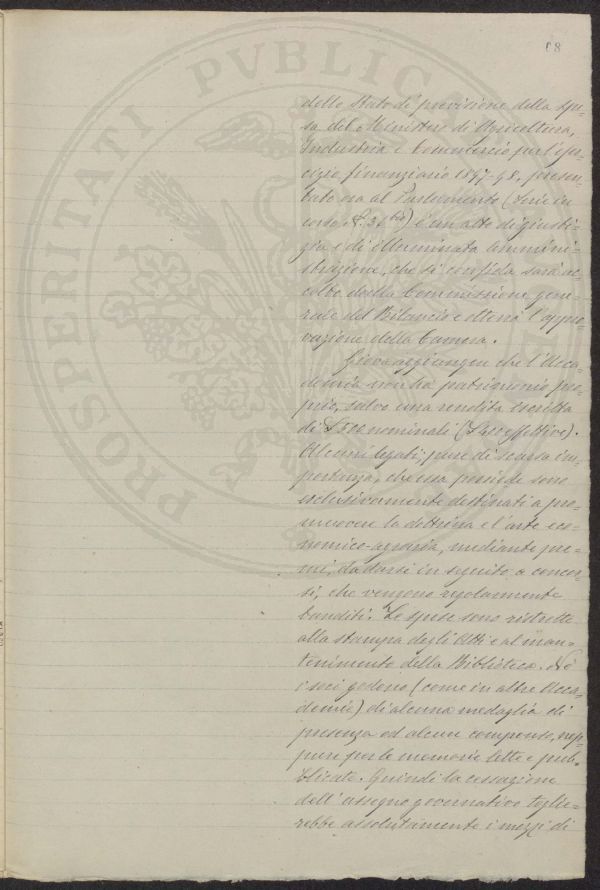 68
PROSPERITATI PVBLICA
dello Stato di previsione della spe=
sa del Ministero di Agricoltura,
Industria e Commercio per l'eser=
cizio finanziario 1897-98, presen=
tato ora al Parlamento (Serie in
corso, 31 bis) è un atto di giusti=
zia e di illuminata ammini=
strazione, che si confida sarà ac=
colto dalla Commissione gene=
rale del Bilancio e otterrà l'appro=
vazione della Camera.
Giova aggiungere che l'Acca=
demia non ha patrimonio pro=
prio, salvo una rendita iscritta
di £500 nominali (£400 effettive).
Alcuni legati, pure di scarsa im=
portanza, che essa possiede sono
esclusivamente destinati a pro=
muovere la dottrina e l'arte eco=
nomico-agraria, mediante pre=
mi, da darsi in seguito a concor=
si, che vengono regolarmente
banditi. Le spese sono ristrette
alla stampa degli Atti e al man=
tenimento della Biblioteca. Nè
i soci godono (come in altre Acca=
demie) di alcuna medaglia di
presenza od alcun compenso, nep=
pure per le memorie lette e pub=
blicate. Quindi la cessazione
dell'assegno governativo toglie=
rebbe assolutamente i mezzi di